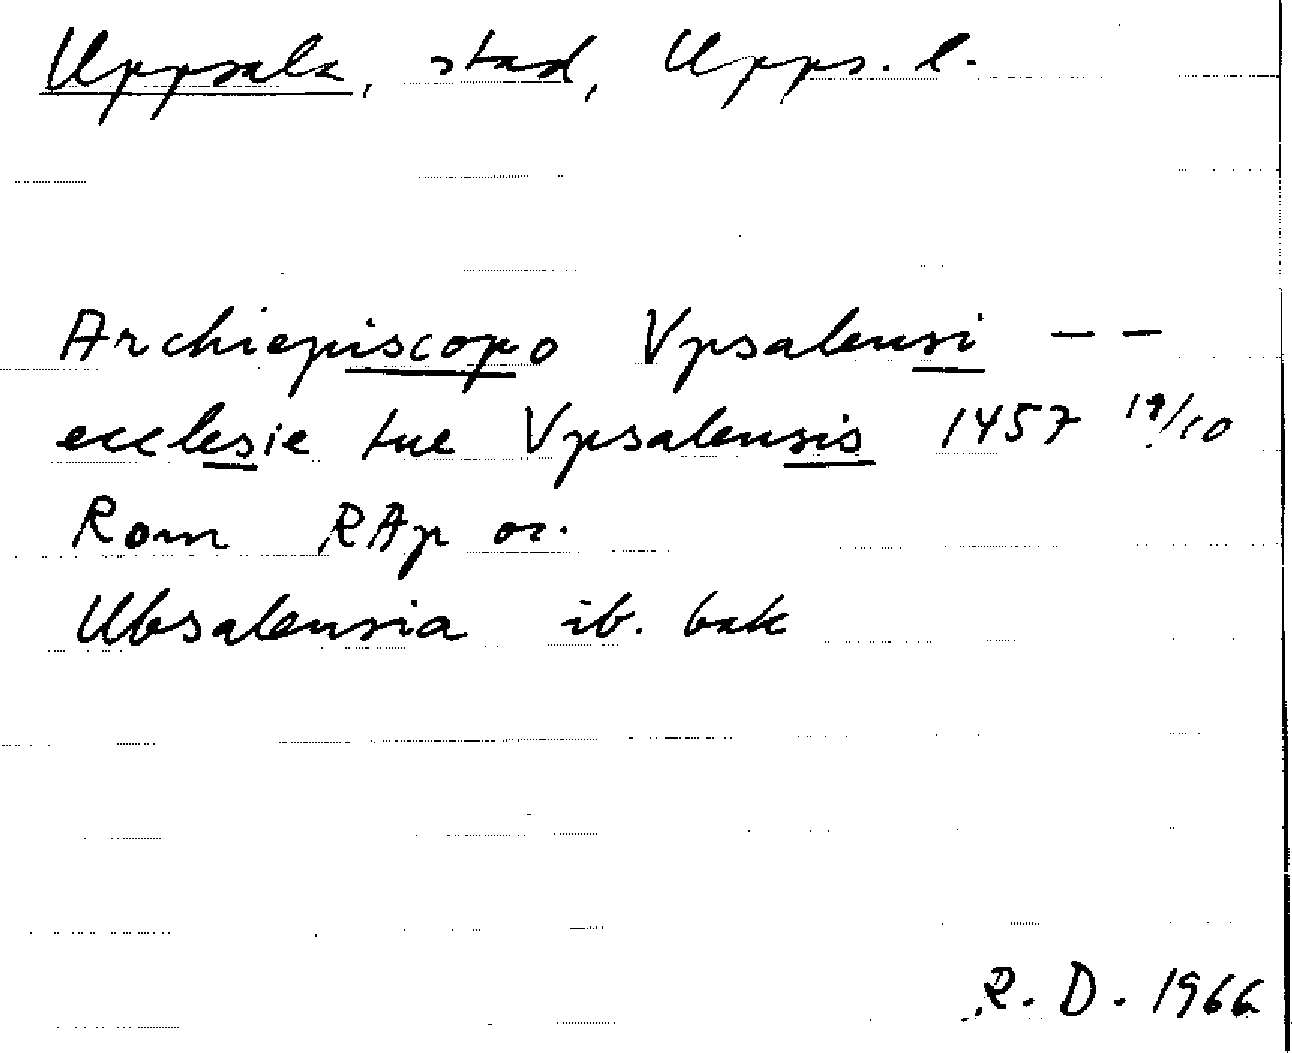 Uppsala, stad, Upps. l.
Archiepiscopo Vpsalensi - -
ecclesie tue Vpsalensis 1457 19/10
Rom RAp or.
Ubsalensia ib. bak
R. D. 1966